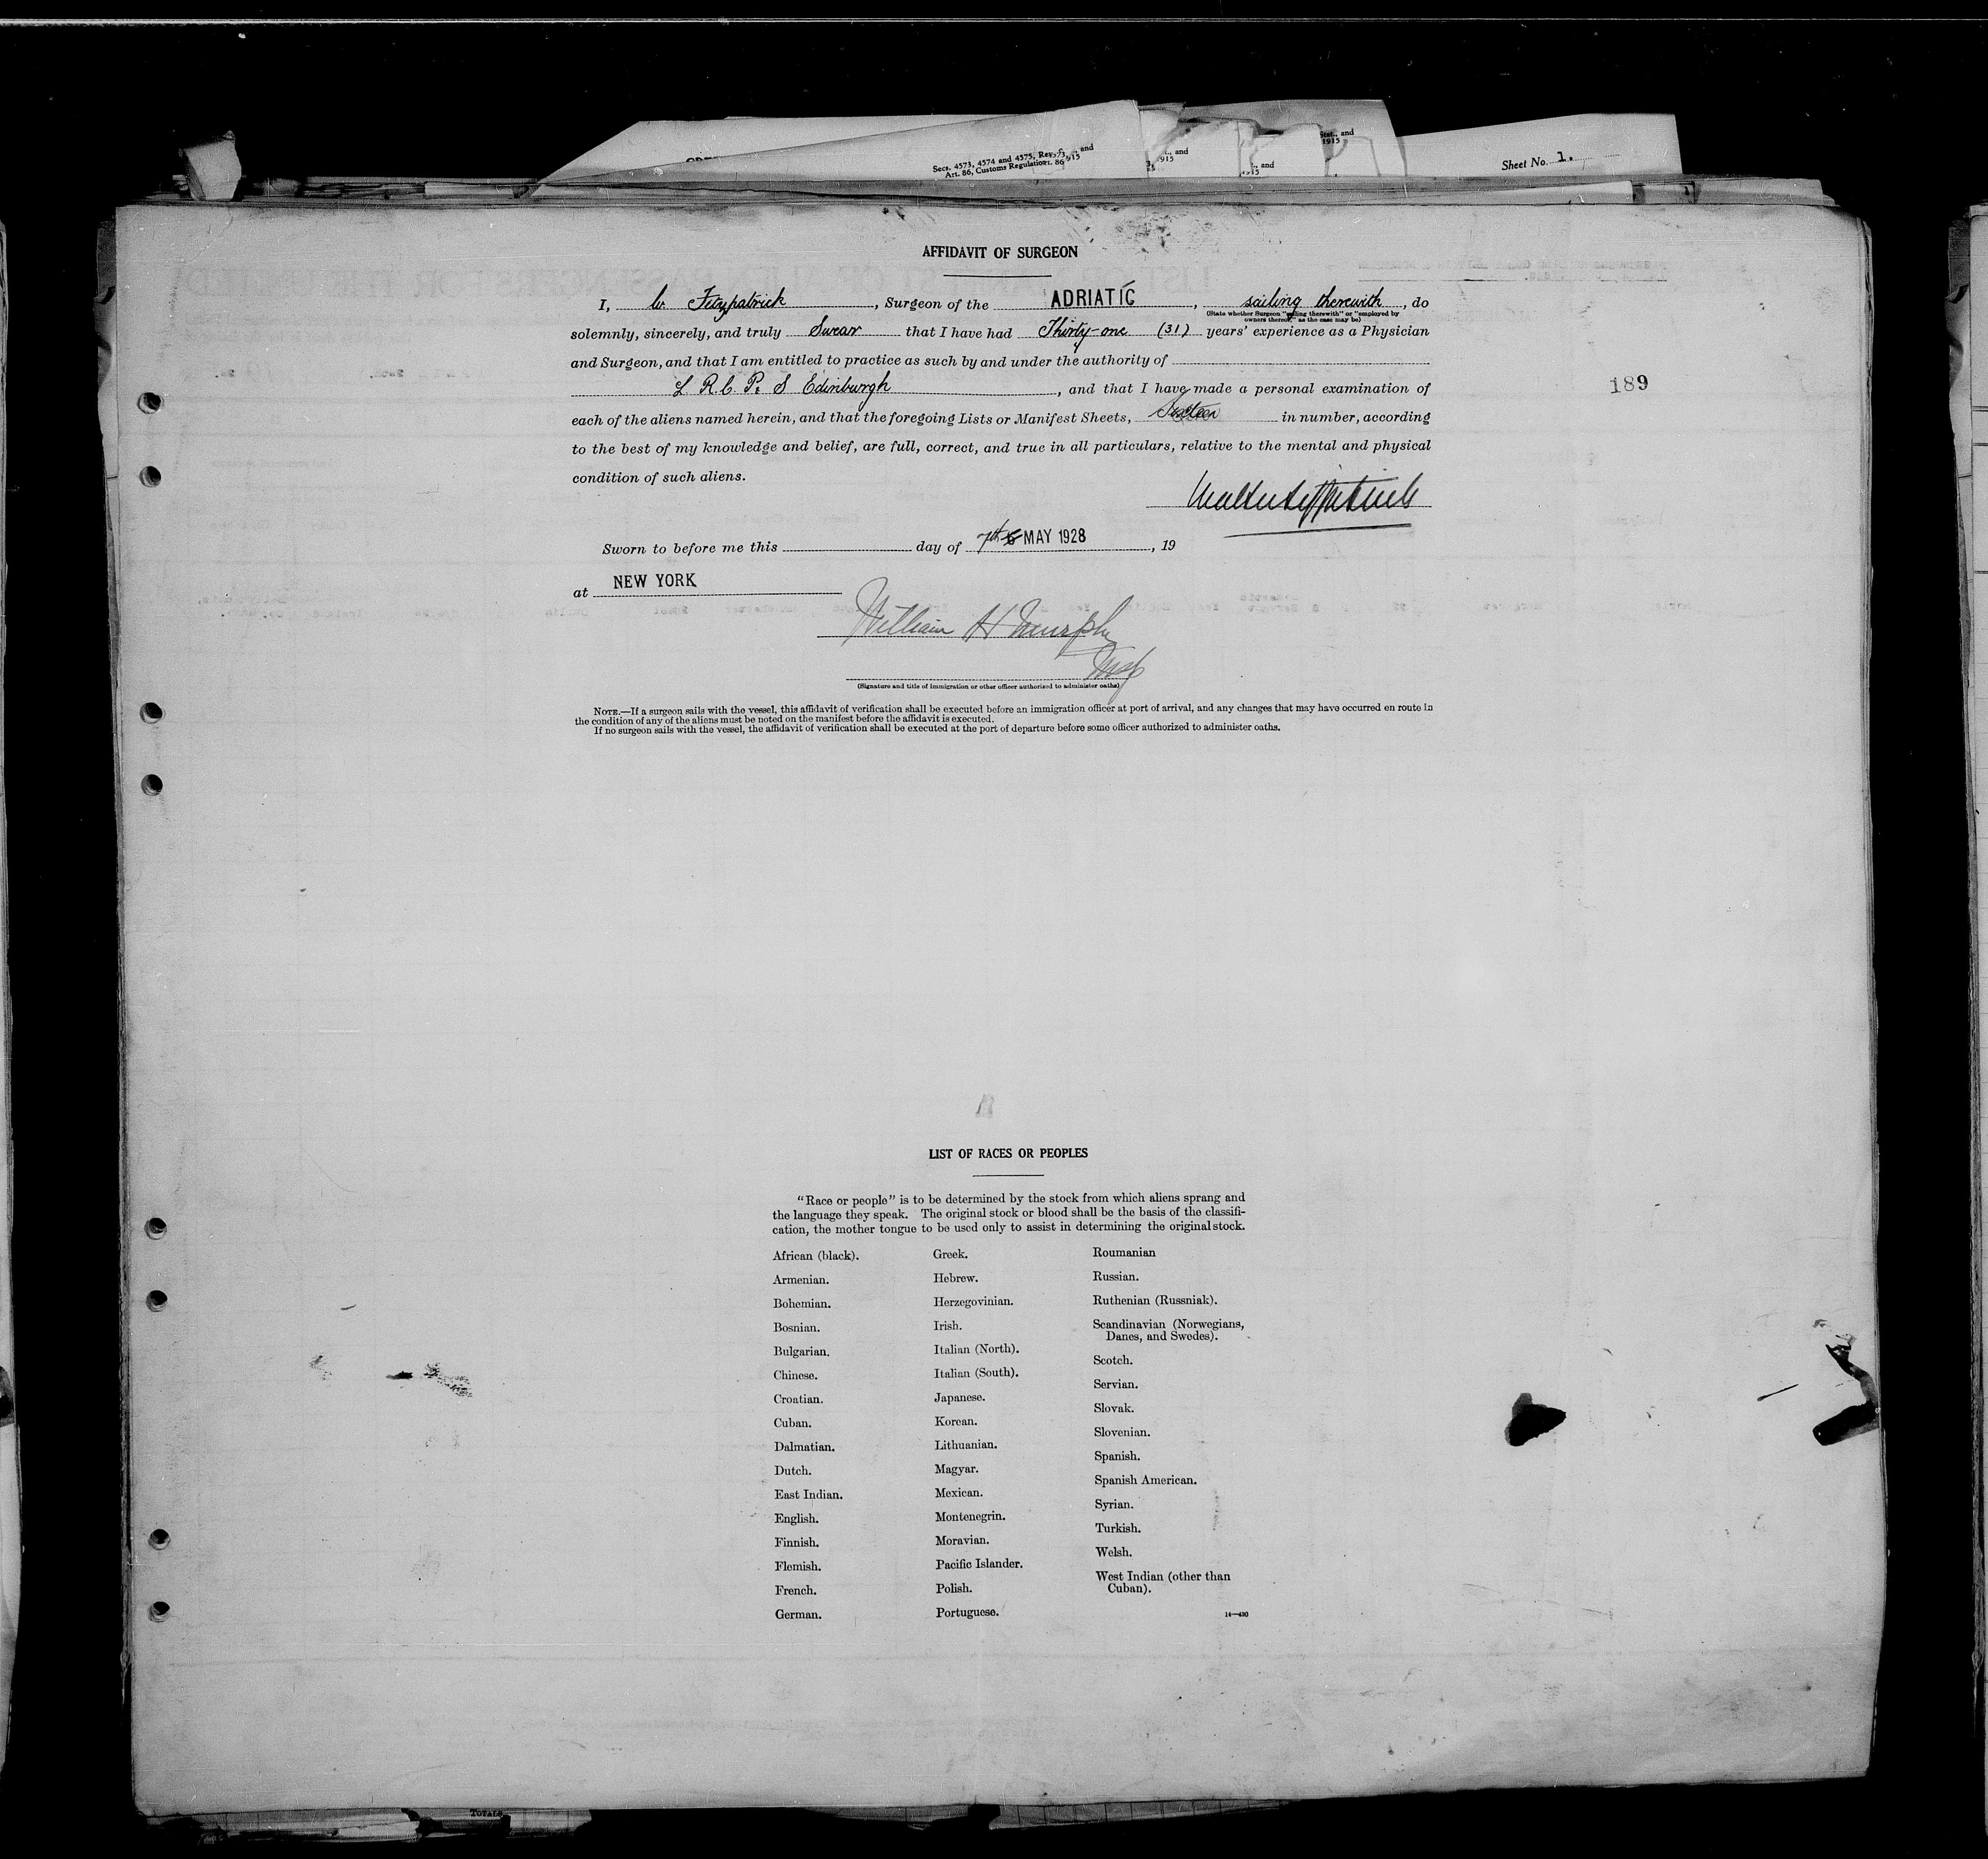 Secs. 4573, 4574 and 4575, Rev.
Art. 86, Customs Regulation
Stat., and
1915
Sheet No. 1.
AFFIDAVIT OF SURGEON
I, W. Fitzpatrick, Surgeon of the ADRIATIC, sailing therewith, do
(State whether Surgeon "sailing therewith" or "employed by
owners thereof," as the case may be)
solemnly, sincerely, and truly Swear that I have had Thirty-one (31) years' experience as a Physician
and Surgeon, and that I am entitled to practice as such by and under the authority of
L R.C. P. S Edinburgh, and that I have made a personal examination of
189
each of the aliens named herein, and that the foregoing Lists or Manifest Sheets, Sixteen in number, according
to the best of my knowledge and belief, are full, correct, and true in all particulars, relative to the mental and physical
condition of such aliens.
Walter Fitzpatrick
Sworn to before me this day of 7th MAY 1928, 19
at NEW YORK
William H Murphy
Insp
(Signature and title of immigration or other officer authorized to administer oaths)
NOTE.—If a surgeon sails with the vessel, this affidavit of verification shall be executed before an immigration officer at port of arrival, and any changes that may have occurred en route in
the condition of any of the aliens must be noted on the manifest before the affidavit is executed.
If no surgeon sails with the vessel, the affidavit of verification shall be executed at the port of departure before some officer authorized to administer oaths.
LIST OF RACES OR PEOPLES
"Race or people" is to be determined by the stock from which aliens sprang and
the language they speak. The original stock or blood shall be the basis of the classifi-
cation, the mother tongue to be used only to assist in determining the original stock.
African (black).
Armenian.
Bohemian.
Bosnian.
Bulgarian.
Chinese.
Croatian.
Cuban.
Dalmatian.
Dutch.
East Indian.
English.
Finnish.
Flemish.
French.
German.
Greek.
Hebrew.
Herzegovinian.
Irish.
Italian (North).
Italian (South).
Japanese.
Korean.
Lithuanian.
Magyar.
Mexican.
Montenegrin.
Moravian.
Pacific Islander.
Polish.
Portuguese.
Roumanian
Russian.
Ruthenian (Russniak).
Scandinavian (Norwegians,
Danes, and Swedes).
Scotch.
Servian.
Slovak.
Slovenian.
Spanish.
Spanish American.
Syrian.
Turkish.
Welsh.
West Indian (other than
Cuban).
14—430
TOTALS